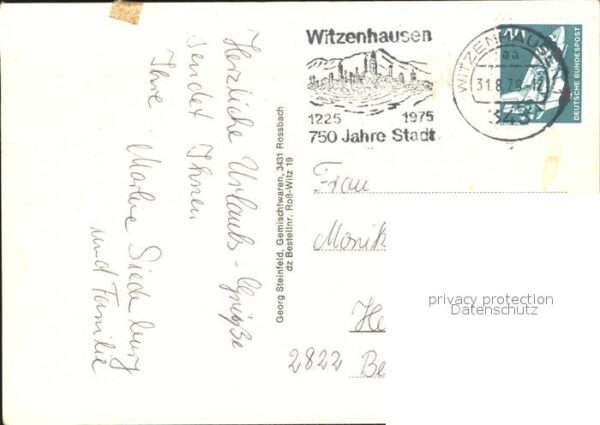 Herzliche Urlaubs-Grüße
sendet Ihnen
Ihre Martine Siedeburg
und Familie
Georg Steinfeld, Gemischtwaren, 3431 Rossbach
dz Bestellnr. Roß-Witz 19
Witzenhausen
1225 1975
750 Jahre Stadt
WITZENHAUSEN
aa
31.8.79-12
343
DEUTSCHE BUNDESPOST
Frau
Monik
He
2822 Be
privacy protection
Datenschutz